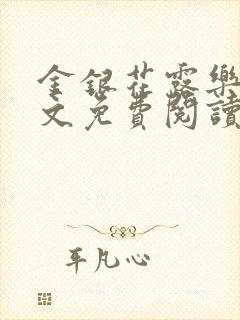 金銀花露樂
文免費閱讀
平凡心